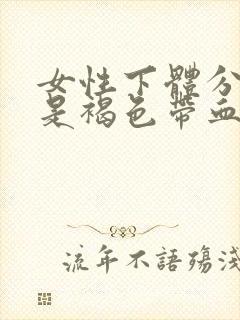 女性下體分
是褐色帶血
流年不語殤淺